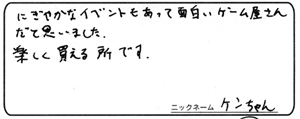 にぎやかなイベントもあって面白いゲーム屋さん
だと思いました.
楽しく買える所です.
ニックネーム ケンちゃん